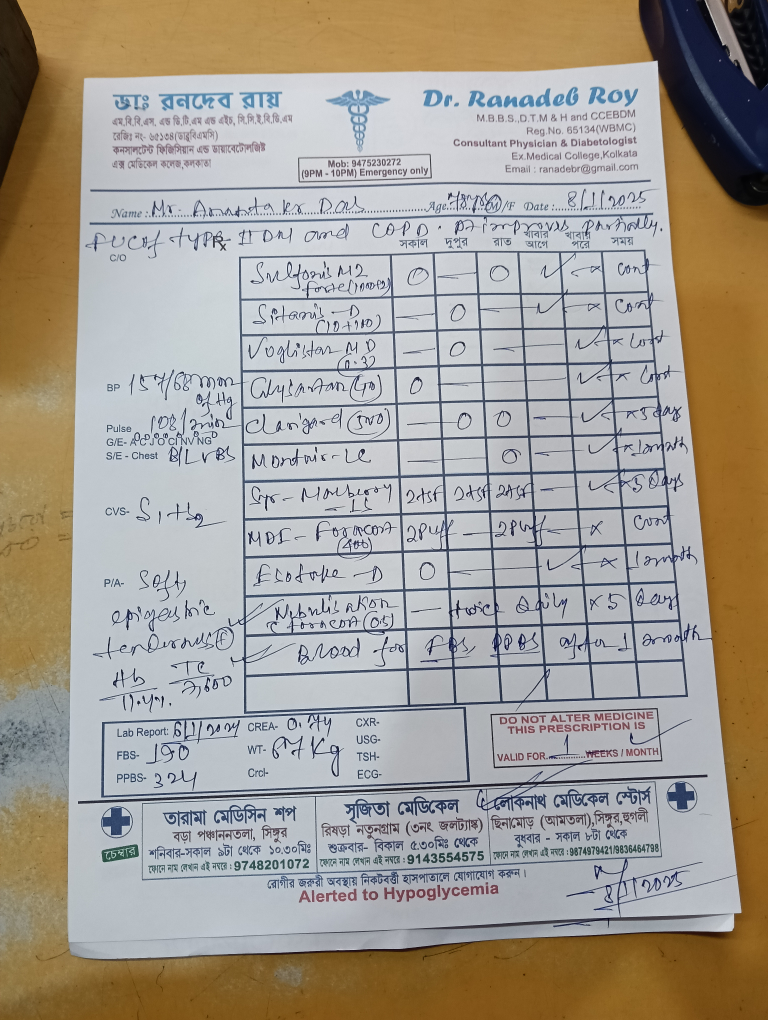 ডাঃ রনদেব রায়
এম.বি.বি.এস, এন্ড ডি.টি.এম এন্ড এইচ, সি.সি.ই.বি.ডি.এম
রেজিঃ নং- ৬৫১৩৪(ডাব্লুবিএমসি)
কনসালটেন্ট ফিজিসিয়ান এন্ড ডায়াবেটোলজিষ্ট
এক্স মেডিকেল কলেজ,কলকাতা
Mob: 9475230272
(9PM - 10PM) Emergency only
Dr. Ranadeb Roy
M.B.B.S.,D.T.M & H and CCEBDM
Reg.No. 65134(WBMC)
Consultant Physician & Diabetologist
Ex.Medical College,Kolkata
Email : ranadebr@gmail.com
Name : Mr. Ananta kr Das Age: M/F Date : 8/1/2025
of type II DM and COPD. Pt improves partially.
Rx
C/O
সকাল দুপুর রাত খাবার আগে খাবার পরে সময়
M2 forte (1000+2) O — O ✓ — x Cont
Sitaris - D (10+100) — O — ✓ — x Cont
Voglistar MD (0.3) — O — — ✓ x Cont
(40) O — — — ✓ x Cont
Clarigard (500) — O O — ✓ x 5 days
Montair-LC — — O — ✓ x 1 month
Syr- Mucberry - LS 2tsf 2tsf 2tsf — ✓ x 5 Days
MDI- Foracort (400) 2Puff — 2Puff — x Cont
Esotake - D O — — ✓ — x 1 month
Nebulisation c foracort (0.5) — twice daily x 5 Days
Blood for FBS, PPBS after 1 month
BP 157/68 mm of Hg
Pulse 108/min
G/E- A P J O C I NV NG
S/E - Chest B/L VBS
CVS- S1+S2
P/A- Soft,
epigastric
tenderness (+)
Hb TC
11.4%. 7600
Lab Report: 6/1/2024 CREA- 0.74 CXR-
FBS- 190 WT- 67 Kg USG-
PPBS- 324 Crcl- TSH-
ECG-
DO NOT ALTER MEDICINE
THIS PRESCRIPTION IS
VALID FOR 1 WEEKS / MONTH
চেম্বার
তারামা মেডিসিন শপ
বড়া পঞ্চাননতলা, সিঙ্গুর
শনিবার-সকাল ৯টা থেকে ১০.৩০মিঃ
ফোনে নাম লেখান এই নম্বরে : 9748201072
সৃজিতা মেডিকেল
রিষড়া নতুনগ্রাম (৩নং জলট্যাঙ্ক)
শুক্রবার- বিকাল ৫.৩০মিঃ থেকে
ফোনে নাম লেখান এই নম্বরে : 9143554575
লোকনাথ মেডিকেল স্টোর্স
ছিনামোড় (আমতলা),সিঙ্গুর,হুগলী
বুধবার - সকাল ৮টা থেকে
ফোনে নাম লেখান এই নম্বরে : 9874979421/9836464798
রোগীর জরুরী অবস্থায় নিকটবর্তী হাসপাতালে যোগাযোগ করুন।
Alerted to Hypoglycemia
8/1/2025